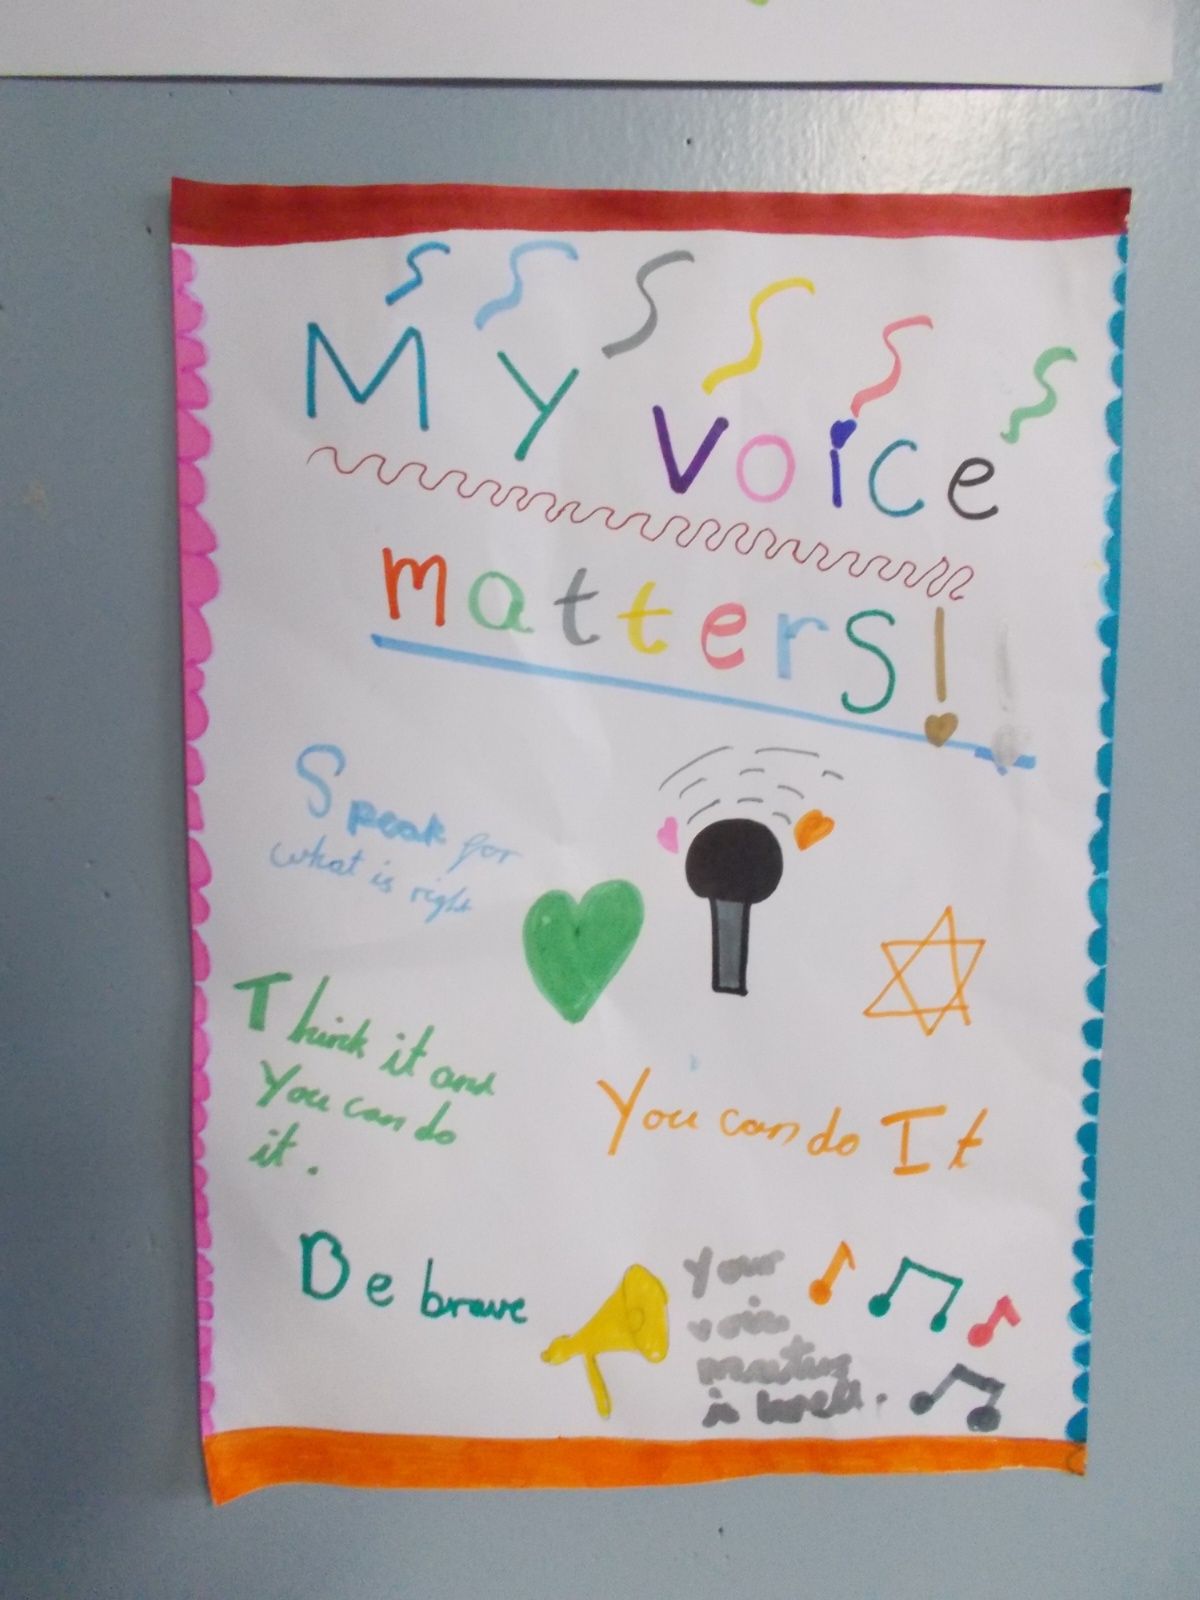 My voice
matters!
Speak for
what is right
Think it and
You can do
it.
You can do It
Be brave
Your
matters